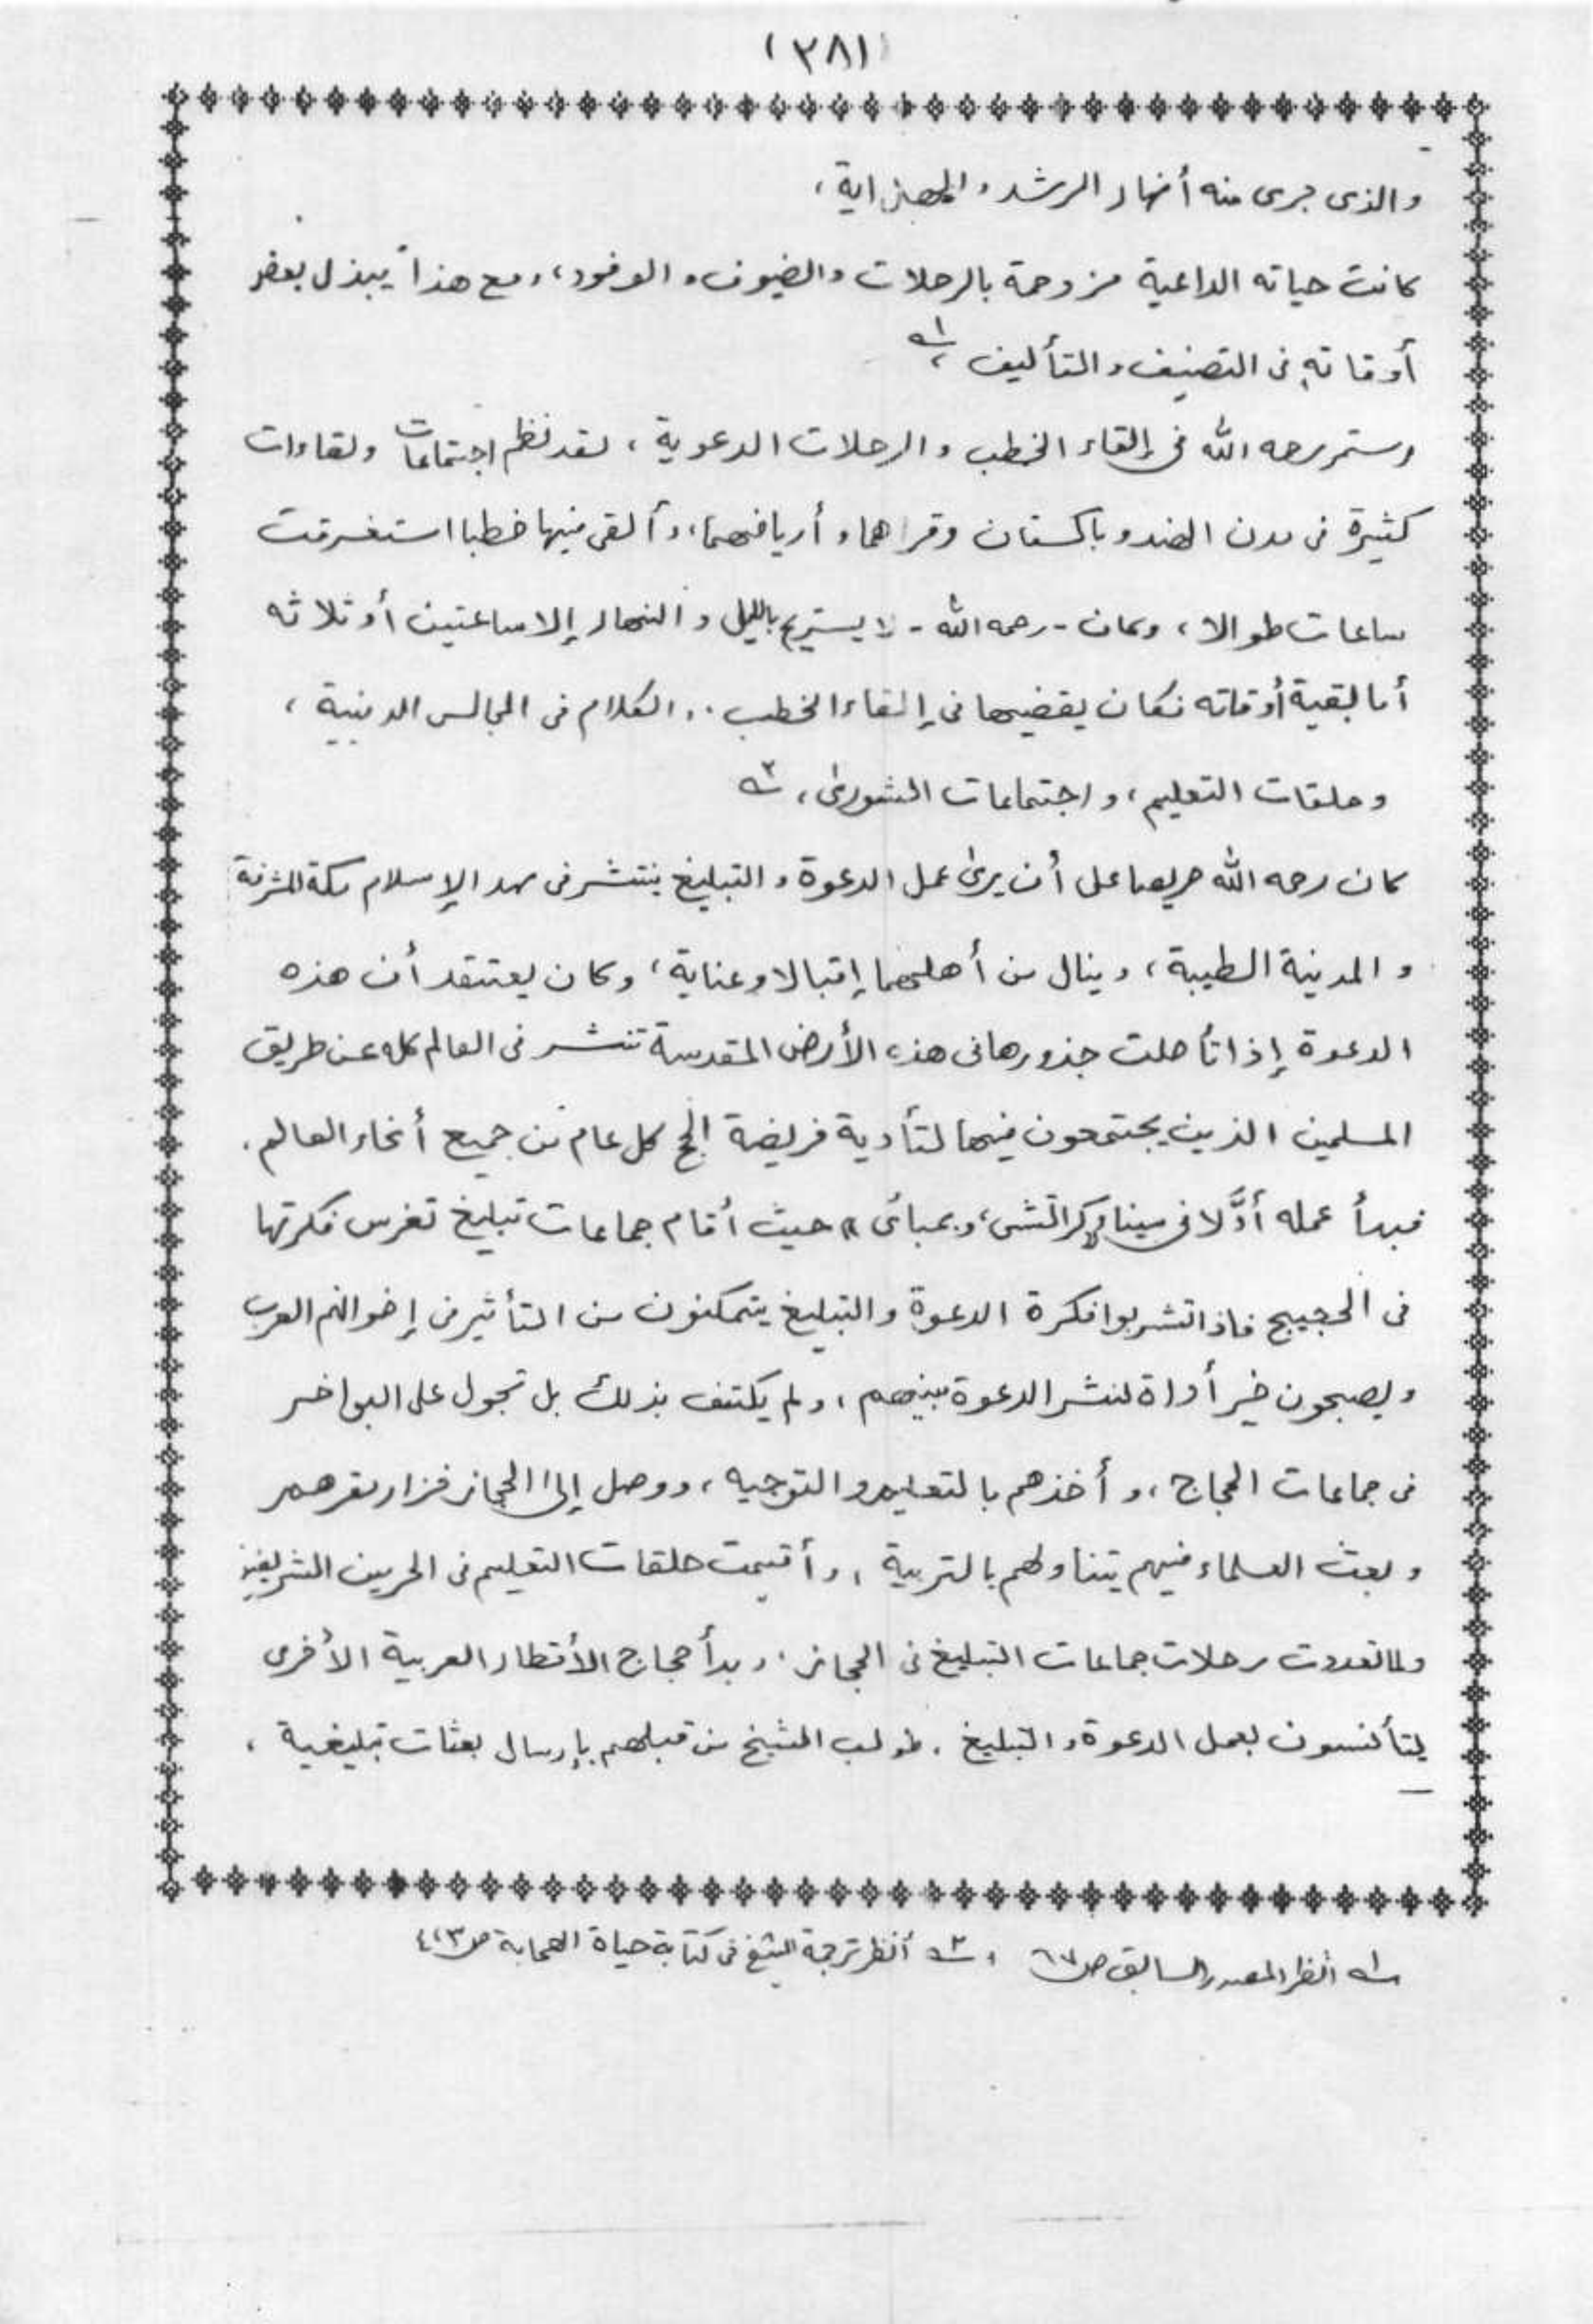 (٣٨١)
والذى جرى منه أنهار الرشد والهداية،
كانت حياته الداعية مزدحمة بالرحلات والضيوف والوفود، ومع هذا يبذل بعض
أوقاته فى التصنيف والتأليف، ١ـه
وستمر رحمه الله فى إلقاء الخطب والرحلات الدعوية، لقد نظم اجتماعات ولقاءات
كثيرة فى مدن الهند وباكستان وقراهما وأريافهما، وألقى فيها خطبا استغرقت
ساعات طوالا، وكان - رحمه الله - لا يستريح بالليل والنهار إلا ساعتين أو ثلاثه
أما بقية أوقاته فكان يقضيها فى إلقاء الخطب، والكلام فى المجالس الدينية،
وحلقات التعليم، واجتماعات الشورىٰ، ٢ـه
كان رحمه الله حريصا على أن يرىٰ عمل الدعوة والتبليغ ينتشر فى مهد الإسلام مكة المشرفة
والمدينة الطيبة، وينال من أهلهما إقبالا وعناية، وكان يعتقد أن هذه
الدعوة إذا تأصلت جذورها فى هذه الأرض المقدسة تنشر فى العالم كله عن طريق
المسلمين الذين يجتمعون فيها لتأدية فريضة الحج كل عام من جميع أنحاء العالم.
فبدأ عمله أوَّلا فى ميناء "كراتشى، وبمبائ" حيث أقام جماعات تبليغ تغرس فكرتها
فى الحجيج فاذا تشربوا فكرة الدعوة والتبليغ يتمكنون من التأثير فى إخوانهم العرب
ويصبحون خير أداة لنشر الدعوة بينهم، ولم يكتف بذلك بل تجول على البواخر
فى جماعات الحجاج، وأخذهم بالتعليم والتوجيه، ووصل إلىٰ الحجاز فزار مقرهم
وبعث العلماء فيهم يتناولهم بالتربية، وأقيمت حلقات التعليم فى الحرمين الشريفين
ولما تعددت رحلات جماعات التبليغ فى الحجاز، وبدأ حجاج الأقطار العربية الأخرى
يتأنسون بعمل الدعوة والتبليغ. طولب الشيخ من قبلهم بإرسال بعثات تبليغية،
١ـه انظر المصدر السابق ص ٦٧ ، ٢ـه أنظر ترجمة الشيخ فى كتابه حياة الصحابة ص